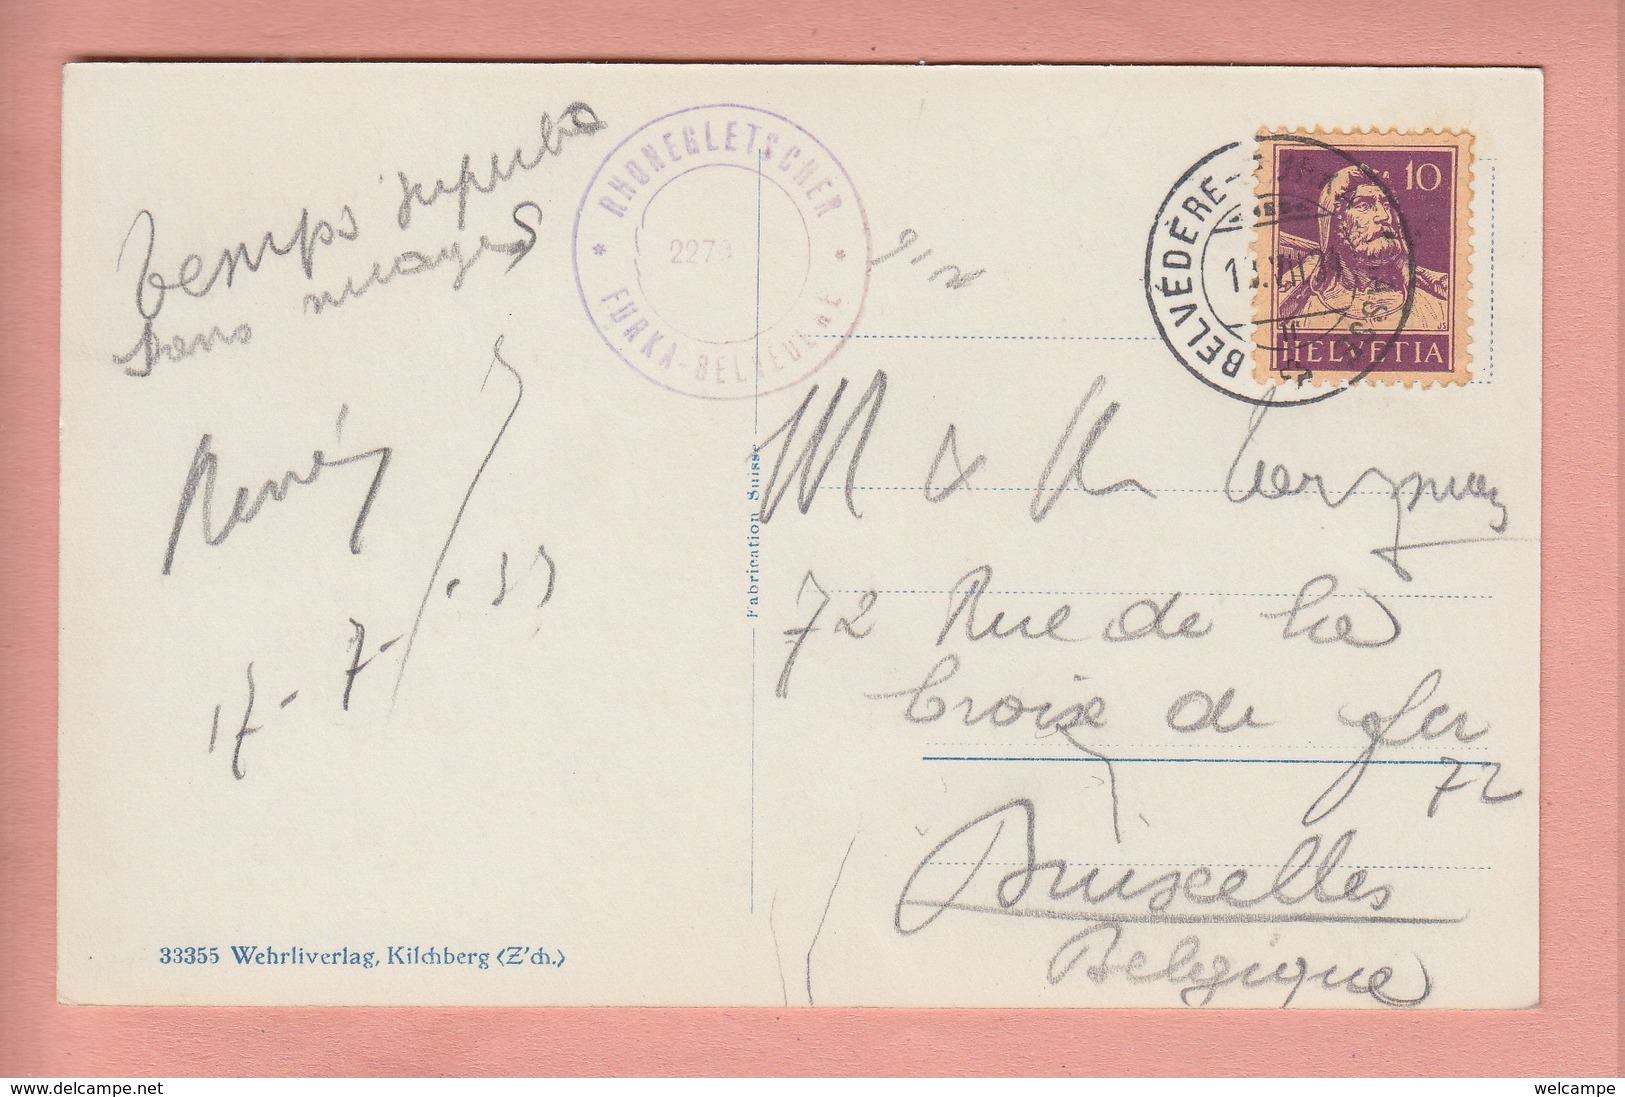 Temps superbe
sans nuages
René
17-7-33
33355 Wehrliverlag, Kilchberg (Z'ch.)
Fabrication Suisse
* RHONEGLETSCHER *
227
FURKA-BELVÉDÈRE
BELVÉDÈRE-FURKA
10
HELVETIA
M &
72 Rue de la
Croix de fer
72
Bruxelles
Belgique
www.delcampe.net
welcampe